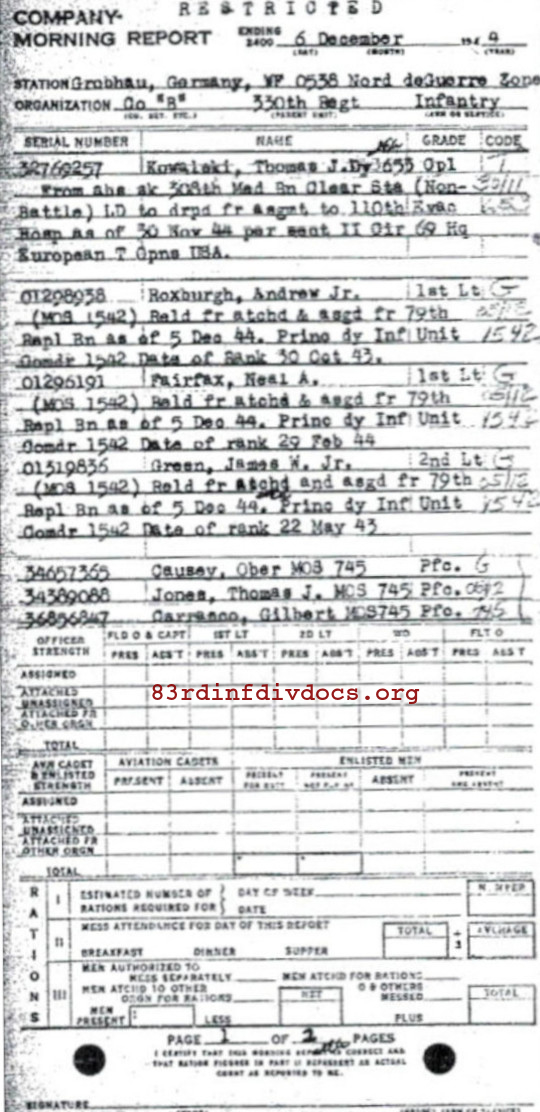 RESTRICTED
COMPANY
MORNING REPORT ENDING 2400 6 December 194 4
(DAY) (MONTH) (YEAR)
STATION Grobhau, Germany, WF 0538 Nord deGuerre Zone
ORGANIZATION Co "B" 330th Regt Infantry
SERIAL NUMBER NAME GRADE CODE
32769257 Kowalski, Thomas J. Dy 655 Cpl
From abs sk 308th Med Bn Clear Sta (Non-
Battle) LD to drpd fr asgmt to 110th Evac
Hosp as of 30 Nov 44 per sect II Cir 69 Hq
European T Opns USA.
01298938 Roxburgh, Andrew Jr. 1st Lt G
(MOS 1542) Reld fr atchd & asgd fr 79th
Repl Bn as of 5 Dec 44. Princ dy Inf Unit 1542
Comdr 1542 Date of Rank 30 Oct 43.
01296191 Fairfax, Neal A. 1st Lt G
(MOS 1542) Reld fr atchd & asgd fr 79th 05/12
Repl Bn as of 5 Dec 44. Princ dy Inf Unit 1542
Comdr 1542 Date of rank 29 Feb 44
01319836 Green, James W. Jr. 2nd Lt G
(MOS 1542) Reld fr atchd and asgd fr 79th 05/12
Repl Bn as of 5 Dec 44. Princ dy Inf Unit 1542
Comdr 1542 Date of rank 22 May 43
34657365 Causey, Ober MOS 745 Pfc. G
34389088 Jones, Thomas J. MOS 745 Pfc.
36896847 Carrasco, Gilbert MOS745 Pfc. 745
OFFICER STRENGTH FLD O & CAPT 1ST LT 2D LT WO FLT O
PRES ABS'T PRES ABS'T PRES ABS'T PRES ABS'T PRES ABS'T
ASSIGNED
ATTACHED UNASSIGNED
83rdinfdivdocs.org
ATTACHED FR OTHER ORGN
TOTAL
AVN CADET & ENLISTED STRENGTH AVIATION CADETS ENLISTED MEN
PRESENT ABSENT PRESENT FOR DUTY PRESENT NOT FOR DY ABSENT PRESENT AND ABSENT
ASSIGNED
ATTACHED UNASSIGNED
ATTACHED FR OTHER ORGN
TOTAL
RATIONS
I ESTIMATED NUMBER OF RATIONS REQUIRED FOR DAY OF WEEK DATE NUMBER
II MESS ATTENDANCE FOR DAY OF THIS REPORT TOTAL ÷ 3 AVERAGE
BREAKFAST DINNER SUPPER
III MEN AUTHORIZED TO MESS SEPARATELY MEN ATCHD FOR RATIONS
MEN ATCHD TO OTHER ORGN FOR RATIONS NET O & OTHERS MESSED TOTAL
MEN PRESENT LESS PLUS
PAGE 1 OF 2 PAGES
I CERTIFY THAT THIS MORNING REPORT IS CORRECT AND
THAT RATION FIGURES IN PART II REPRESENT AS ACTUAL
COUNT AS REPORTED TO ME.
SIGNATURE